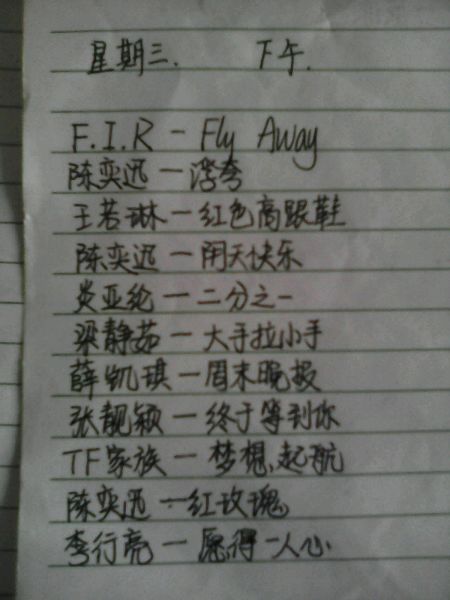 星期三. 下午.
F.I.R - Fly Away
陈奕迅一浮夸
王若琳一红色高跟鞋
陈奕迅一闭天快乐
炎亚纶一二分之一
梁静茹一大手拉小手
薛凯琪一周末晚报
张靓颖一终于等到你
TF家族一梦想,起航
陈奕迅一红玫瑰
李行亮一愿得一人心